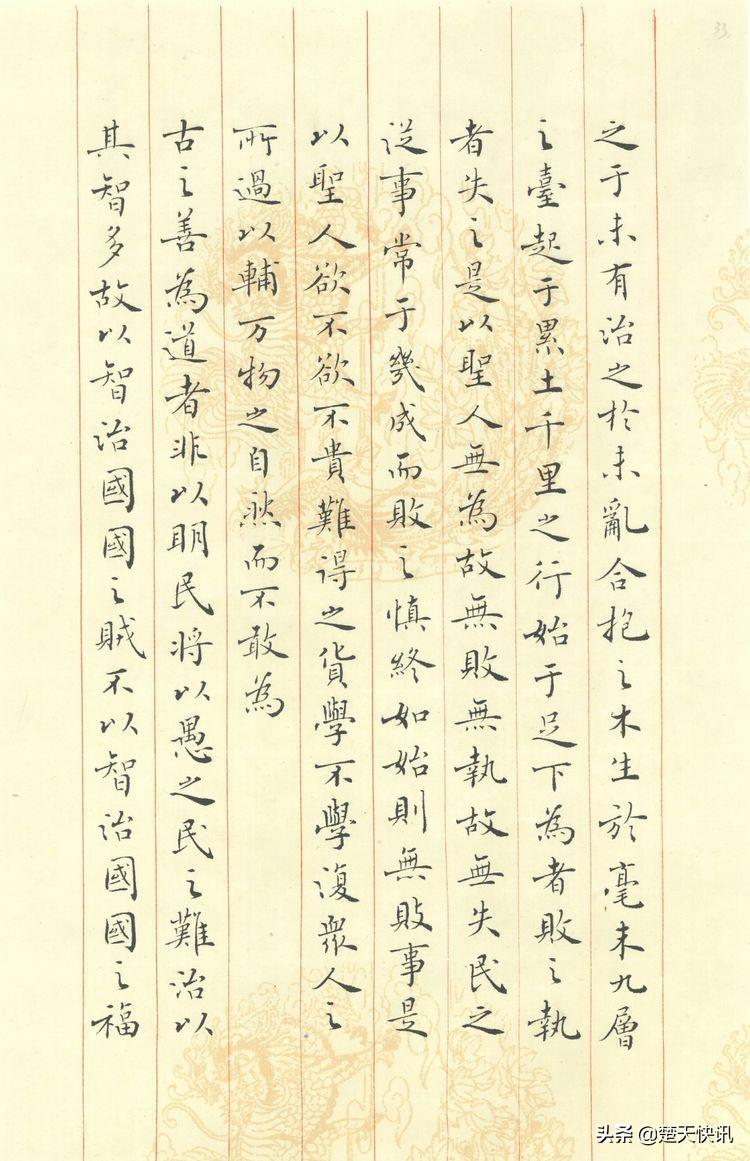 33.
之于未有治之於未亂合抱之木生於毫末九層
之臺起于累土千里之行始于足下為者敗之執
者失之是以聖人無為故無敗無執故無失民之
從事常于幾成而敗之慎終如始則無敗事是
以聖人欲不欲不貴難得之貨學不學復衆人之
所過以輔万物之自然而不敢為
古之善為道者非以明民将以愚之民之難治以
其智多故以智治國國之賊不以智治國國之福
头条 @楚天快讯